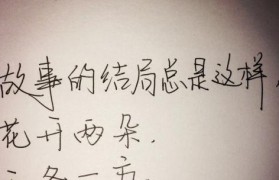 故事的结局总是这样,
花开两朵.